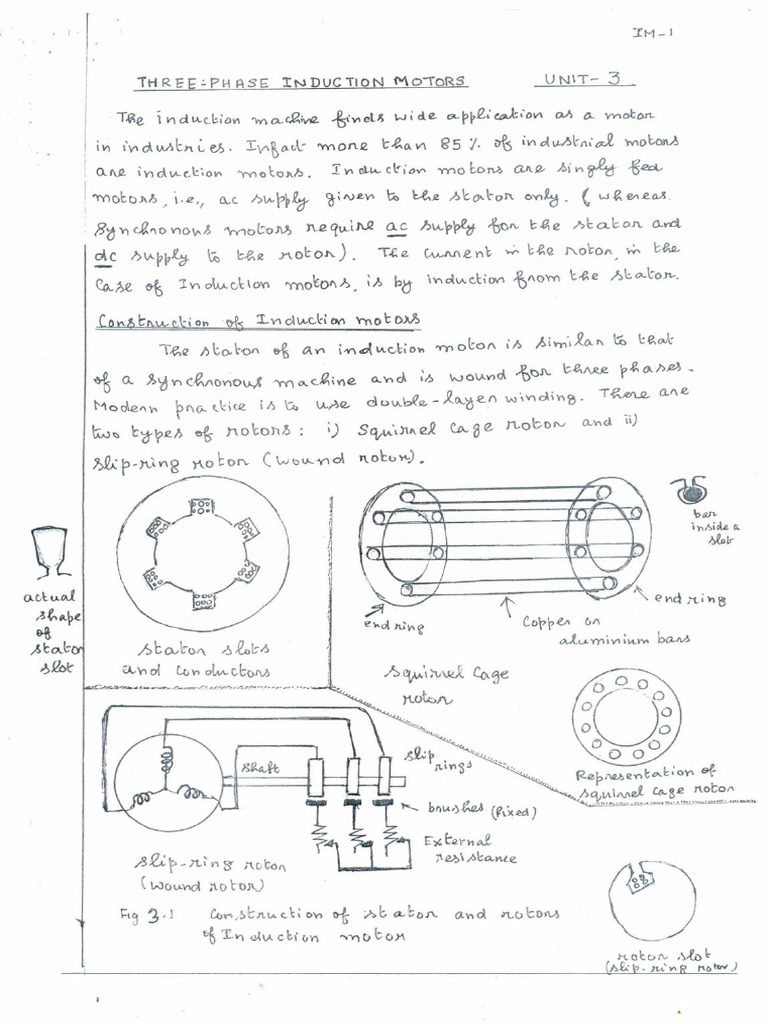 IM-1
THREE-PHASE INDUCTION MOTORS UNIT-3.
The induction machine finds wide application as a motor
in industries. Infact more than 85% of industrial motors
are induction motors. Induction motors are singly fed
motors, i.e., ac supply given to the stator only. (whereas
synchronous motors require ac supply for the stator and
dc supply to the rotor). The current in the rotor, in the
case of Induction motors, is by induction from the stator.
Construction of Induction motors
The stator of an induction motor is similar to that
of a synchronous machine and is wound for three phases.
Modern practice is to use double-layer winding. There are
two types of rotors: i) Squirrel cage rotor and ii)
slip-ring rotor (wound rotor).
bar
inside a
slot
actual
shape
of
stator
slot
stator slots
and conductors
end ring
Copper or
aluminium bars
end ring
Squirrel Cage
rotor
Representation of
squirrel cage rotor
shaft
slip
rings
brushes (fixed)
External
resistance
slip-ring rotor
(wound rotor)
Fig 3.1 Construction of stator and rotors
of Induction motor
rotor slot
(slip-ring rotor)